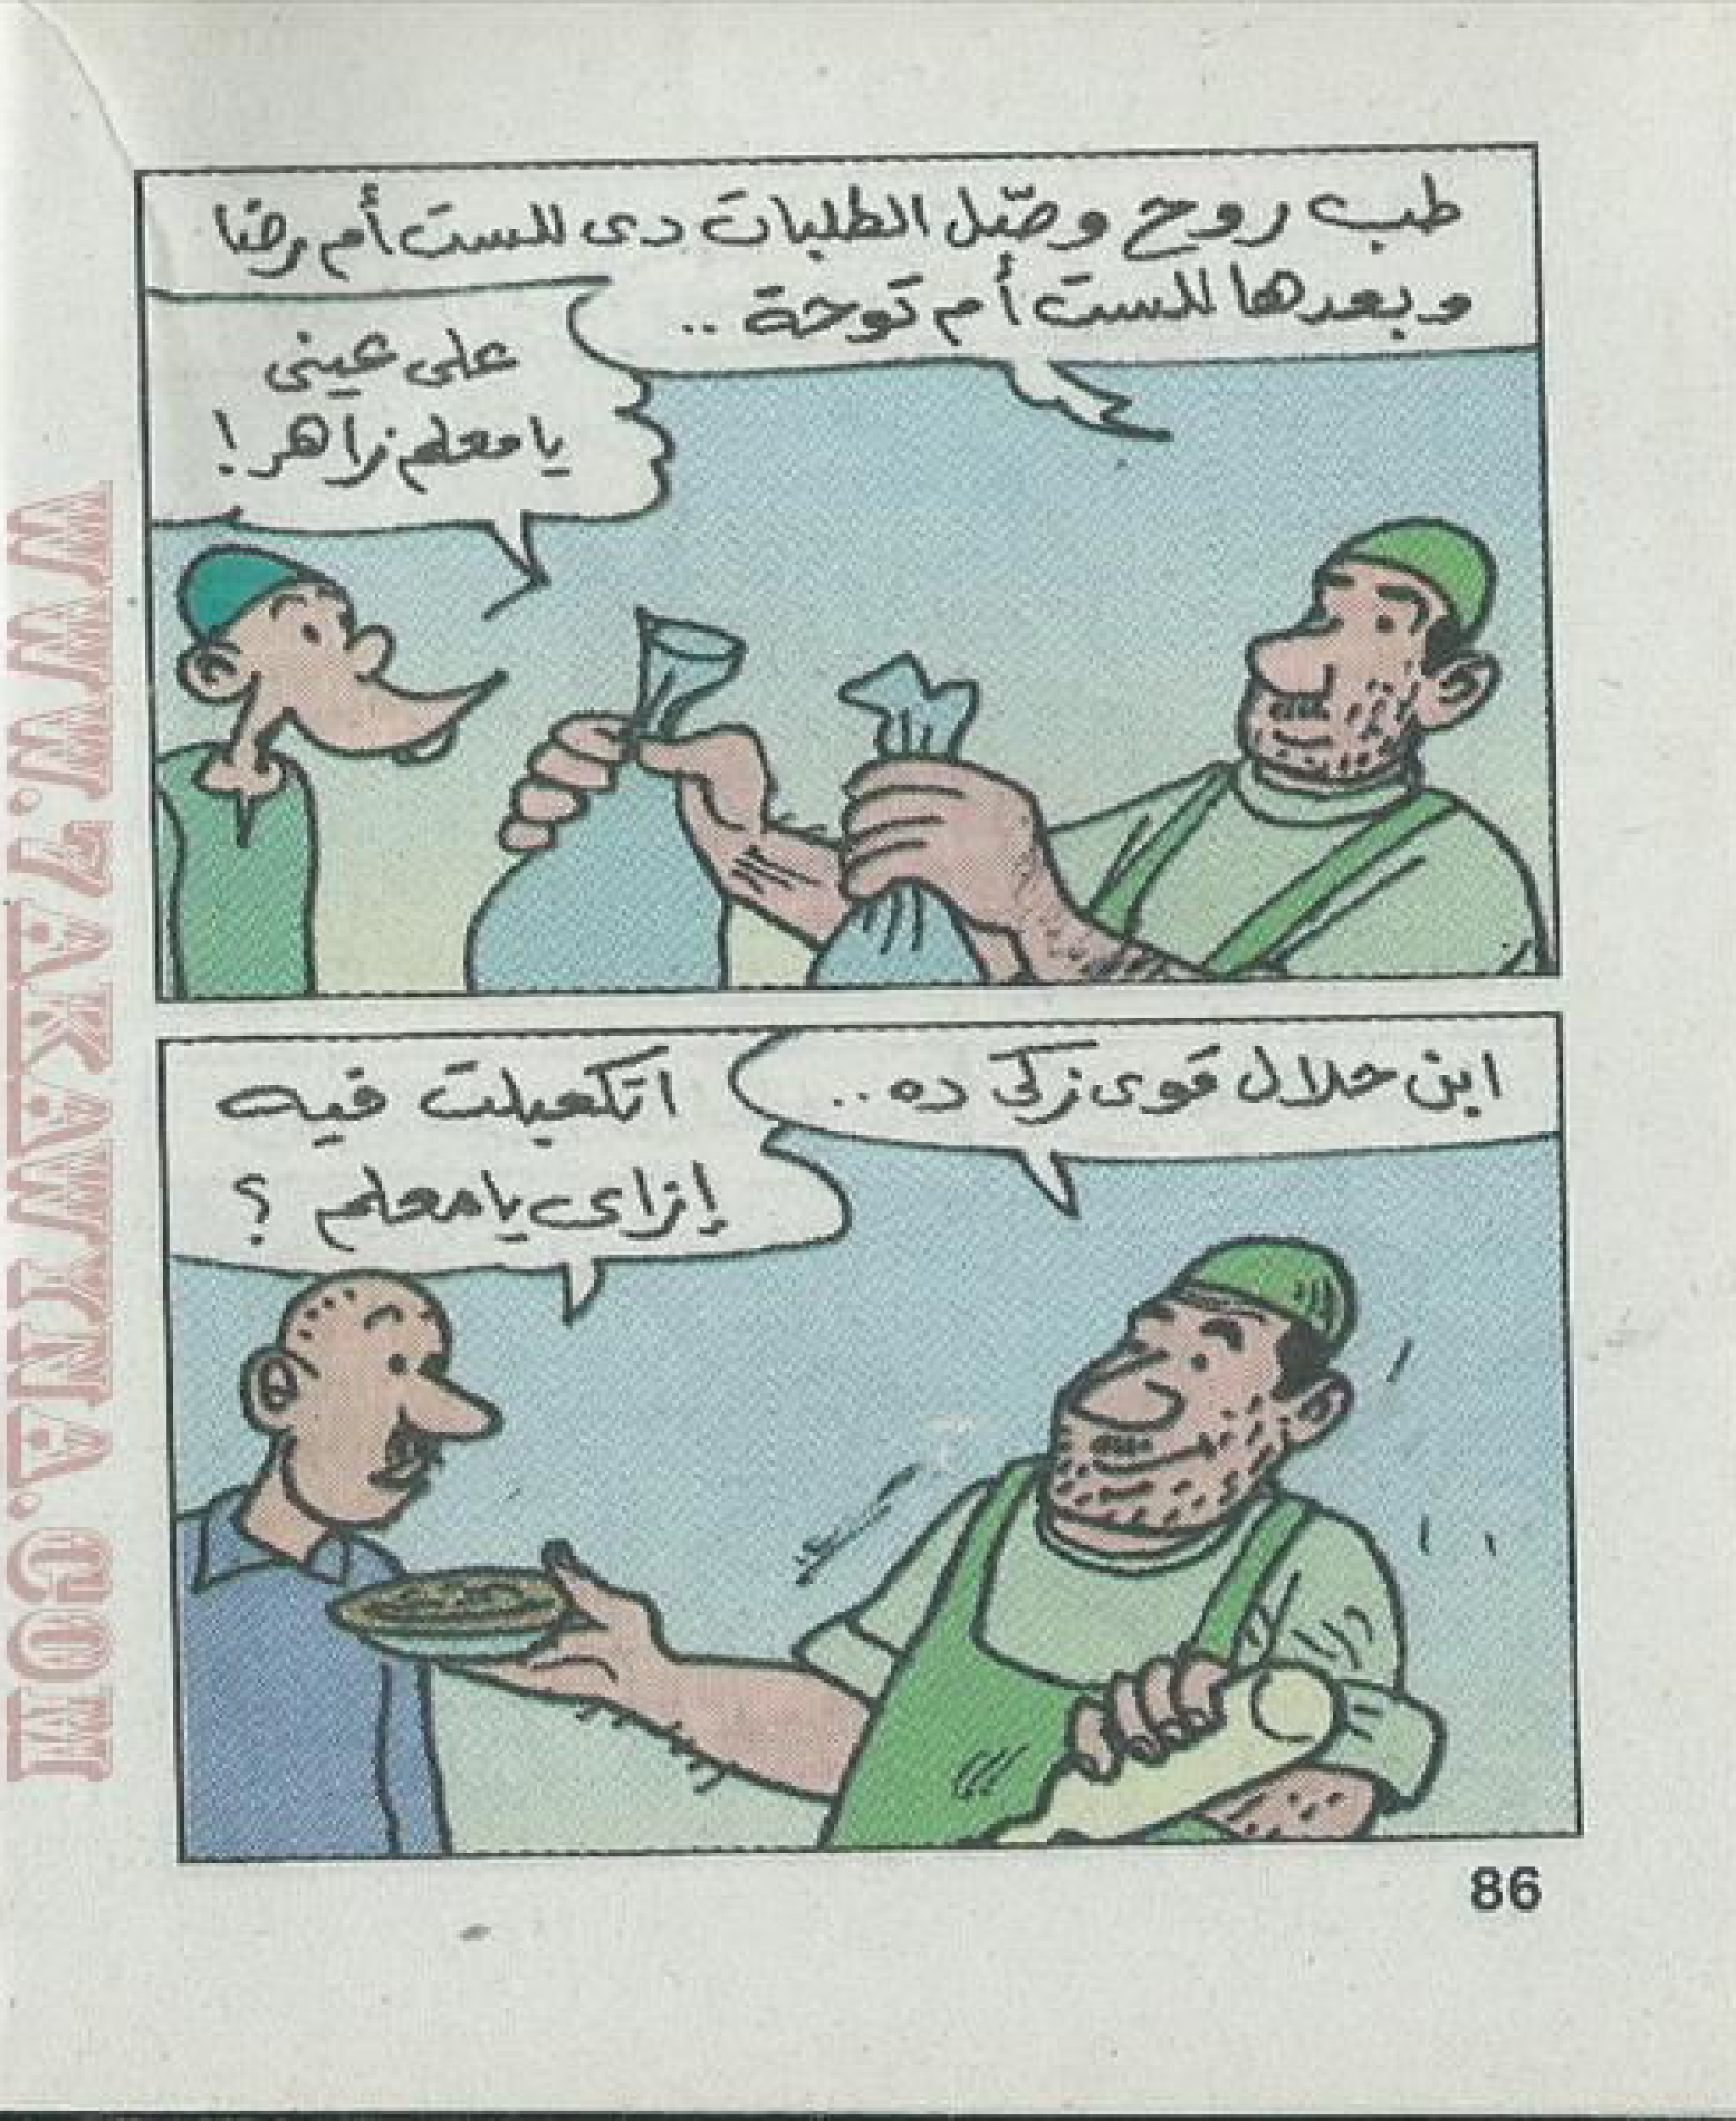 طب روح وصّل الطلبات دى للست أم رضا
وبعدها للست أم توحة ..
على عينى
يا معلم زاهر !
ابن حلال قوى زكى ده ..
اتكعبلت فيه
إزاى يا معلم ؟
86
WWW.ZAKAWINNA.COM